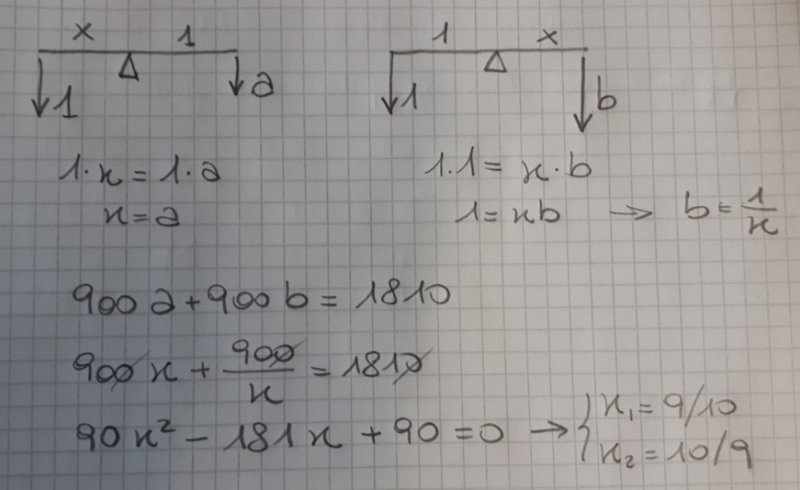 x 1 1 x
1 a 1 b
1·x = 1·a 1·1 = x·b
x = a 1 = xb → b = 1/x
900 a + 900 b = 1810
900 x + 900/x = 1810
90x² - 181x + 90 = 0 → { x₁ = 9/10
x₂ = 10/9